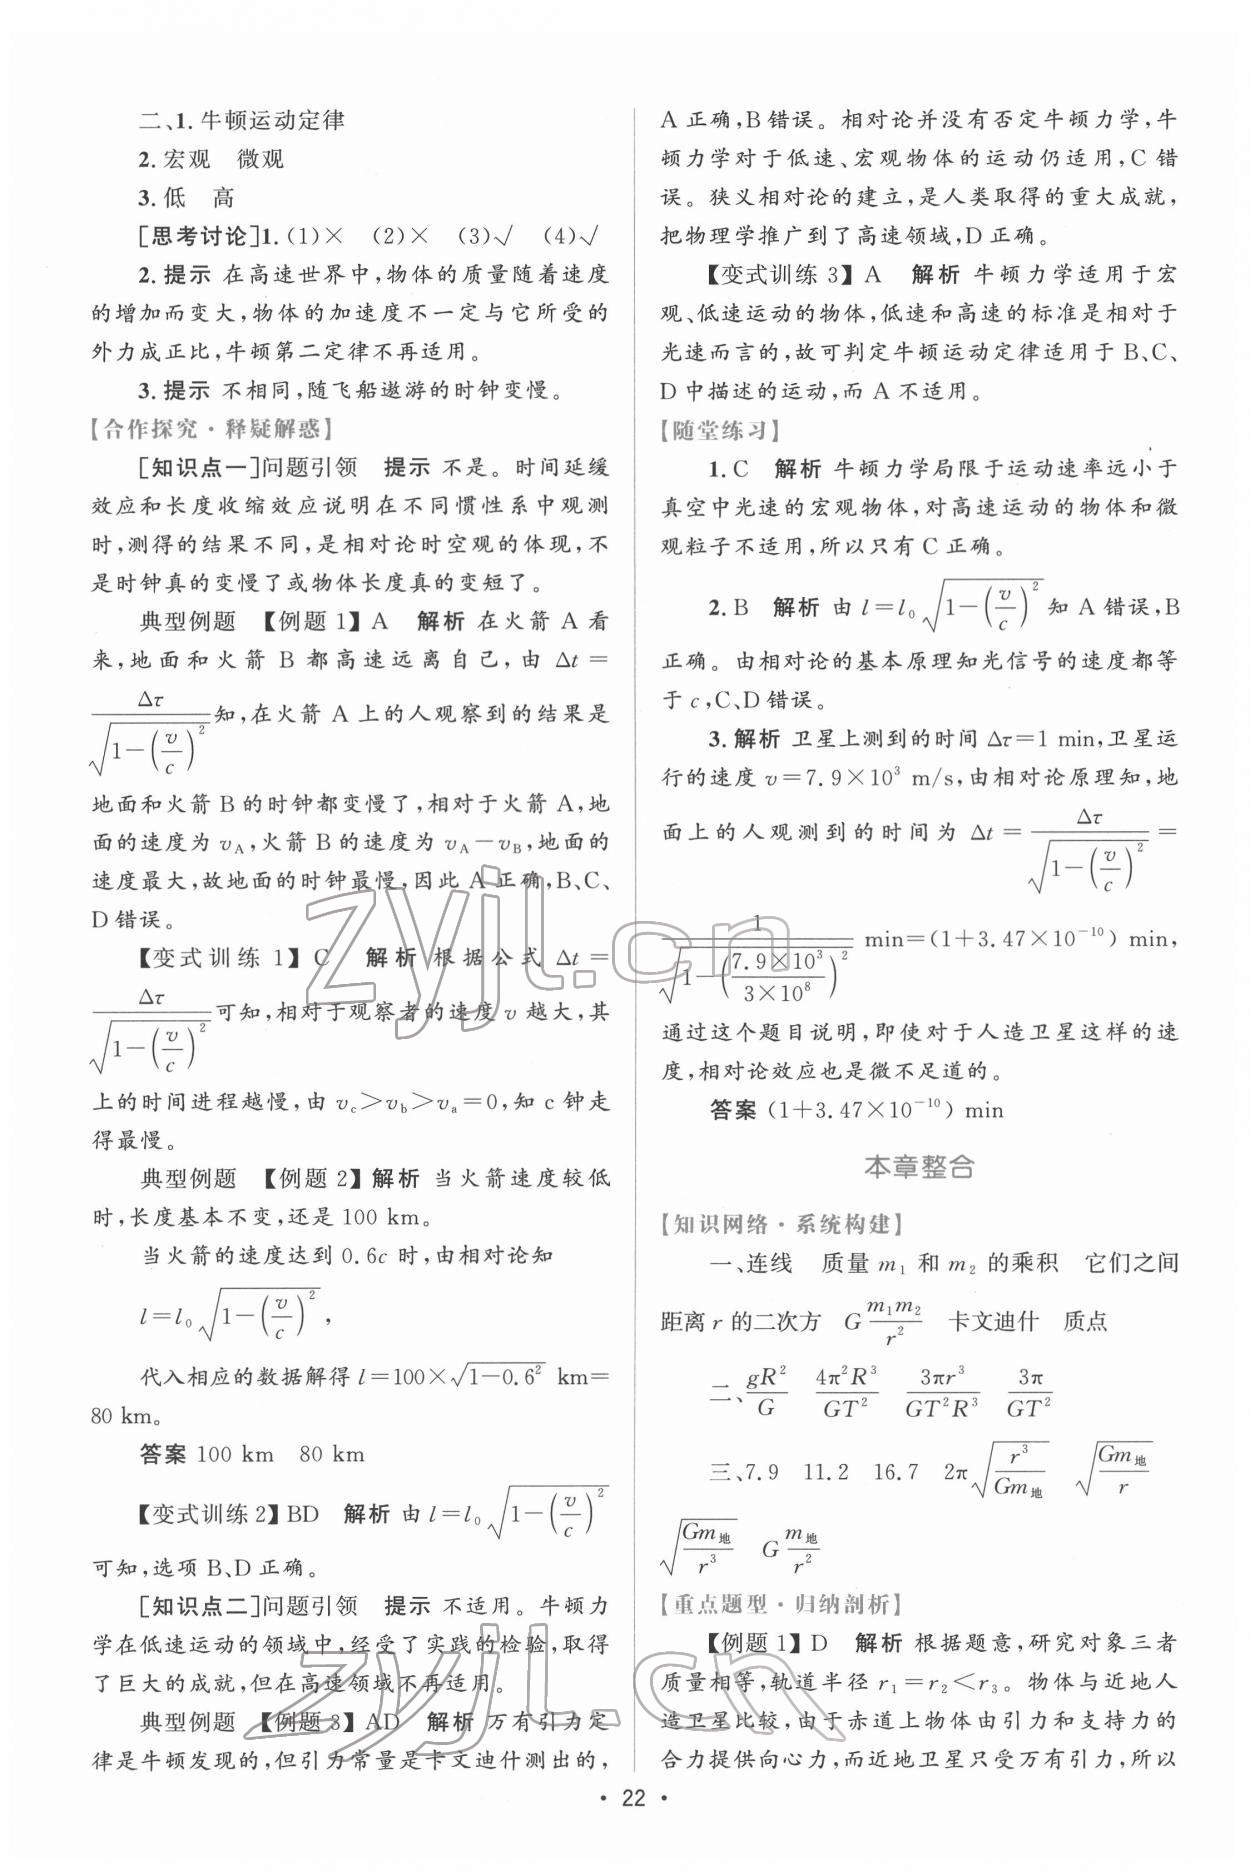 二、1. 牛顿运动定律
2. 宏观　微观
3. 低　高
[思考讨论]1. (1)×　(2)×　(3)√　(4)√
2. 提示 在高速世界中,物体的质量随着速度
的增加而变大,物体的加速度不一定与它所受的
外力成正比,牛顿第二定律不再适用。
3. 提示 不相同,随飞船遨游的时钟变慢。
【合作探究·释疑解惑】
[知识点一]问题引领　提示 不是。时间延缓
效应和长度收缩效应说明在不同惯性系中观测
时,测得的结果不同,是相对论时空观的体现,不
是时钟真的变慢了或物体长度真的变短了。
典型例题　【例题1】A　解析 在火箭 A 看
来,地面和火箭 B 都高速远离自己,由 Δt=
Δτ/√(1-(v/c)²) 知,在火箭 A 上的人观察到的结果是
地面和火箭 B 的时钟都变慢了,相对于火箭 A,地
面的速度为 v_A,火箭 B 的速度为 v_A-v_B,地面的
速度最大,故地面的时钟最慢,因此 A 正确,B、C、
D 错误。
【变式训练1】C　解析 根据公式 Δt=
Δτ/√(1-(v/c)²) 可知,相对于观察者的速度 v 越大,其
上的时间进程越慢,由 v_c>v_b>v_a=0,知 c 钟走
得最慢。
典型例题　【例题2】解析 当火箭速度较低
时,长度基本不变,还是 100 km。
当火箭的速度达到 0.6c 时,由相对论知
l=l₀√(1-(v/c)²),
代入相应的数据解得 l=100×√(1-0.6²) km=
80 km。
答案 100 km　80 km
【变式训练2】BD　解析 由 l=l₀√(1-(v/c)²)
可知,选项 B、D 正确。
[知识点二]问题引领　提示 不适用。牛顿力
学在低速运动的领域中,经受了实践的检验,取得
了巨大的成就,但在高速领域不再适用。
典型例题　【例题3】AD　解析 万有引力定
律是牛顿发现的,但引力常量是卡文迪什测出的,
A 正确,B 错误。相对论并没有否定牛顿力学,牛
顿力学对于低速、宏观物体的运动仍适用,C 错
误。狭义相对论的建立,是人类取得的重大成就,
把物理学推广到了高速领域,D 正确。
【变式训练3】A　解析 牛顿力学适用于宏
观、低速运动的物体,低速和高速的标准是相对于
光速而言的,故可判定牛顿运动定律适用于 B、C、
D 中描述的运动,而 A 不适用。
【随堂练习】
1. C　解析 牛顿力学局限于运动速率远小于
真空中光速的宏观物体,对高速运动的物体和微
观粒子不适用,所以只有 C 正确。
2. B　解析 由 l=l₀√(1-(v/c)²) 知 A 错误,B
正确。由相对论的基本原理知光信号的速度都等
于 c,C、D 错误。
3. 解析 卫星上测到的时间 Δτ=1 min,卫星运
行的速度 v=7.9×10³ m/s,由相对论原理知,地
面上的人观测到的时间为 Δt=Δτ/√(1-(v/c)²)=
1/√(1-(7.9×10³/3×10⁸)²) min=(1+3.47×10⁻¹⁰) min,
通过这个题目说明,即使对于人造卫星这样的速
度,相对论效应也是微不足道的。
答案 (1+3.47×10⁻¹⁰) min
本章整合
【知识网络·系统构建】
一、连线　质量 m₁ 和 m₂ 的乘积　它们之间
距离 r 的二次方　G m₁m₂/r²　卡文迪什　质点
二、gR²/G　4π²R³/GT²　3πr³/GT²R³　3π/GT²
三、7.9　11.2　16.7　2π√(r³/Gm地)　√(Gm地/r)
√(Gm地/r³)　G m地/r²
【重点题型·归纳剖析】
【例题1】D　解析 根据题意,研究对象三者
质量相等,轨道半径 r₁=r₂<r₃。物体与近地人
造卫星比较,由于赤道上物体由引力和支持力的
合力提供向心力,而近地卫星只受万有引力,所以
· 22 ·
zyjl.cn
zyjl.cn